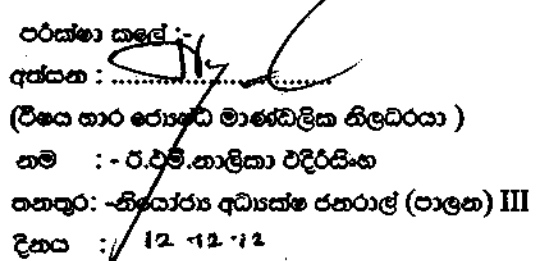 පරීක්ෂා කලේ :-
අත්සන : ................................
(විෂය භාර ජ්‍යෙෂ්ඨ මාණ්ඩලික නිලධරයා )
නම : - ඊ.එම්.නාලිකා එදිරිසිංහ
තනතුර: -නියෝජ්‍ය අධ්‍යක්ෂ ජනරාල් (පාලන) III
දිනය : 12 -12 -12